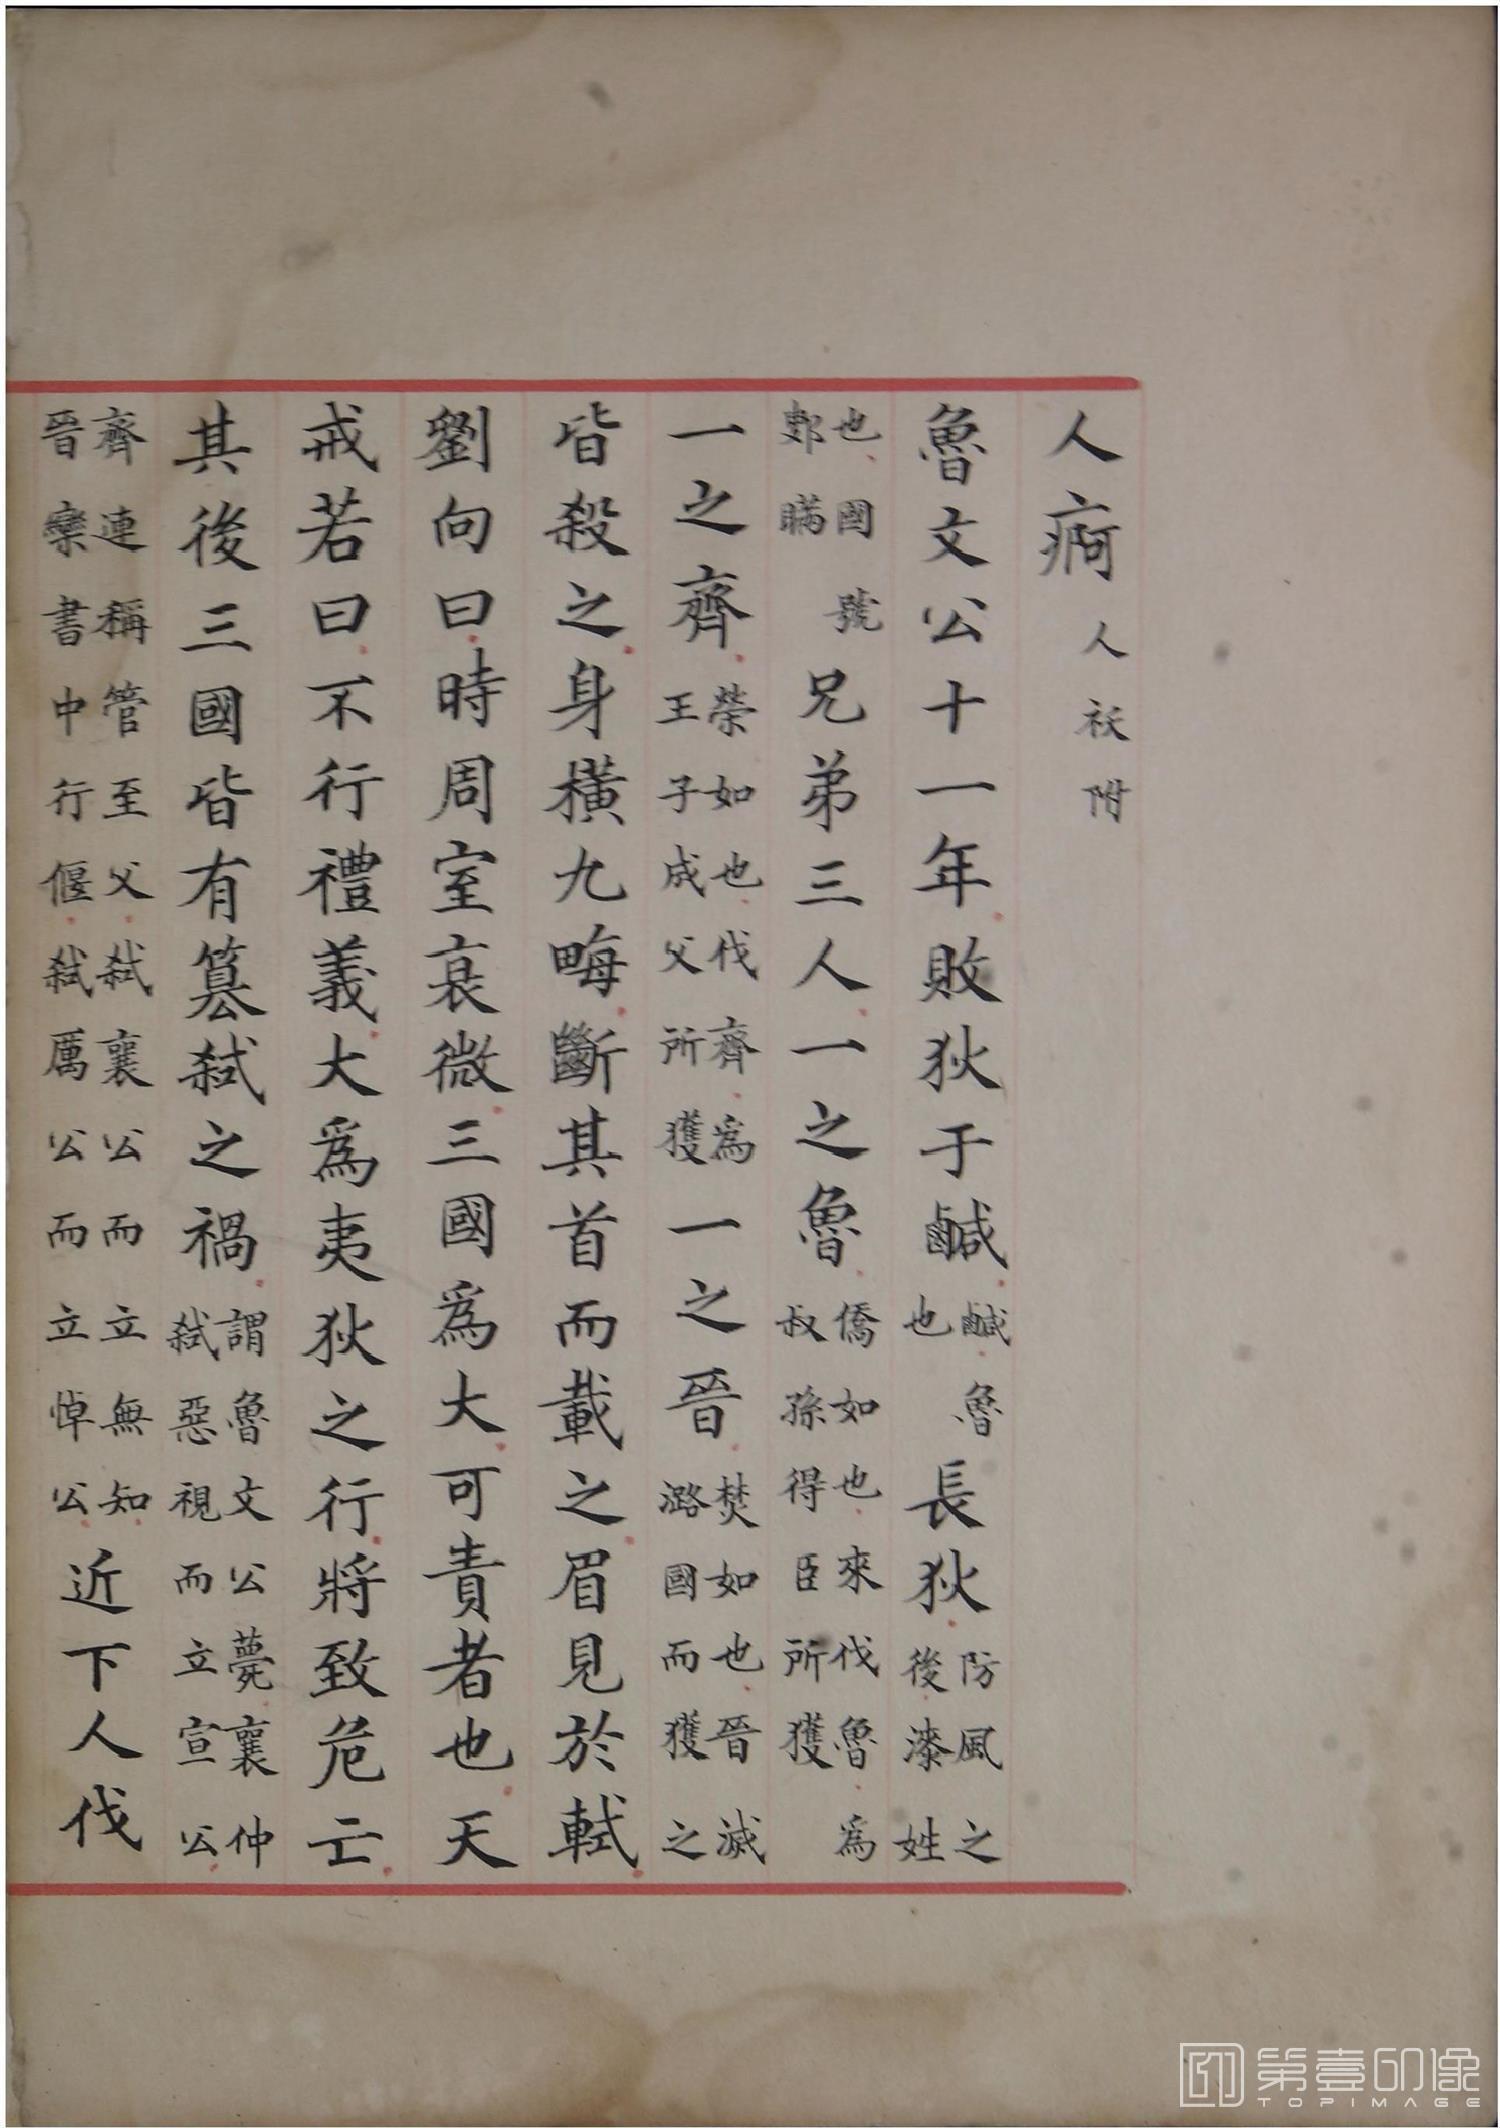 人痾人祅附
魯文公十一年敗狄于鹹鹹魯也長狄防風之後漆姓
也國號鄋瞞兄弟三人一之魯僑如也來伐魯爲叔孫得臣所獲
一之齊榮如也伐齊爲王子成父所獲一之晉焚如也晉滅潞國而獲之
皆殺之身橫九畮斷其首而載之眉見於軾
劉向曰時周室衰微三國爲大可責者也天
戒若曰不行禮義大爲夷狄之行將致危亡
其後三國皆有篡弒之禍謂魯文公薨襄仲弒惡視而立宣公
齊連稱管至父弒襄公而立無知晉欒書中行偃弒厲公而立悼公近下人伐
第壹印像
TOPIMAGE